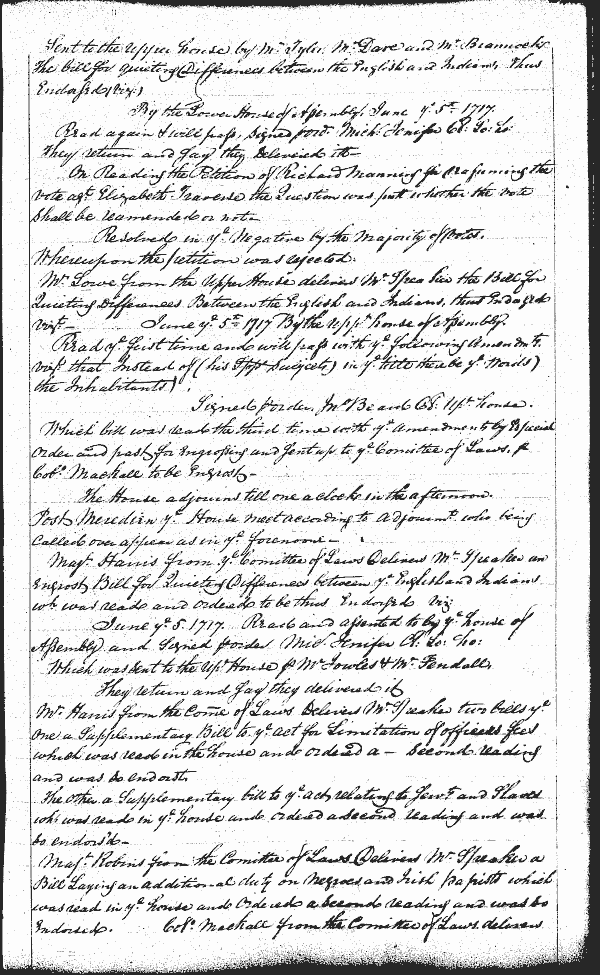 Sent to the upper house by Mr. Tyler, Mr. Dare and Mr. Brannock
The bill for quieting Differences between the English and Indians, thus
Endorsed (viz)
By the Lower House of Assembly, June ye 5th 1717.
Read again & will pass, Signed p ord. Mich: Jenifer Cl: Lo: Ho
They return and say they Delivered it—
On Reading the Petition of Richard Manning for reasuming the
vote agt Elizabeth Traverse the Question was putt whether the vote
Shall be reamended or not—
Resolved in ye Negative by the Majority of votes.
Whereupon the petition was rejected.
Mr. Lowe from the Upper House delivers Mr. Speaker the Bill for
Quieting Differences Between the English and Indians, thus Endorsed
vizt— June ye 5th 1717 By the uppr house of Assembly.
Read ye first time and will pass with ye following Amendmts.
vizt that Instead of (his Majts Subjects) in ye title there be ye Words)
the Inhabitants).
Signed p order, Jno Beard Cl: Up: house.
Which bill was read the third time with ye amendments by Especial
order and past for Engrossing and Sent up to ye Comittee of Laws, p
Colo. Mackall to be Engrost—
The House adjourns till one a clock in the afternoon.
Post Meredien ye House meet according to Adjournmt. who being
Called over appear as in ye forenoon—
Majr. Harris from ye Comittee of Laws Delivers Mr. Speaker an
Engrost Bill for Quieting Differences between ye English and Indians
wch was read and ordered to be thus Endorsed viz:
June ye 5. 1717. Read and assented to by ye house of
Assembly and Signed p order Mich Jenifer Cl: Lo: ho:
Which was Sent to the Up: House p Mr. Fowles & Mr. Fendall,
They return and Say they delivered it
Mr. Harris from the Comee of Laws Delivers Mr. Speaker two bills ye
One a Supplementary Bill to ye act for Limitation of officers fees
which was read in the house and ordered a— Second reading
and was so endorst.
The other a Supplementary bill to ye act, relating to Servts and Slaves
wch was read in ye house and ordered a second reading and was
so endors'd—
Majr. Robins from the Comittee of Laws Delivers Mr. Speaker a
Bill Laying an additional duty on Negroes and Irish papists which
was read in ye house and Ordered a second reading and was so
Endorsed. Colo. Mackall from the Comittee of Laws delivers